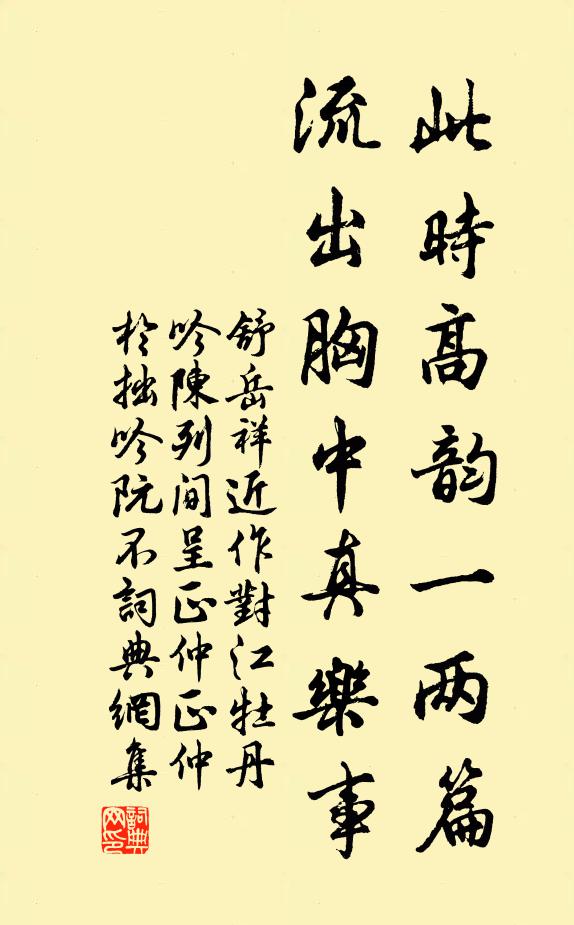 此時高韵一两篇
流出胸中真樂事
舒岳祥近作對江牡丹
吟陳列間呈正仲正仲
於拙吟阮不詞典網集
詞典
网印